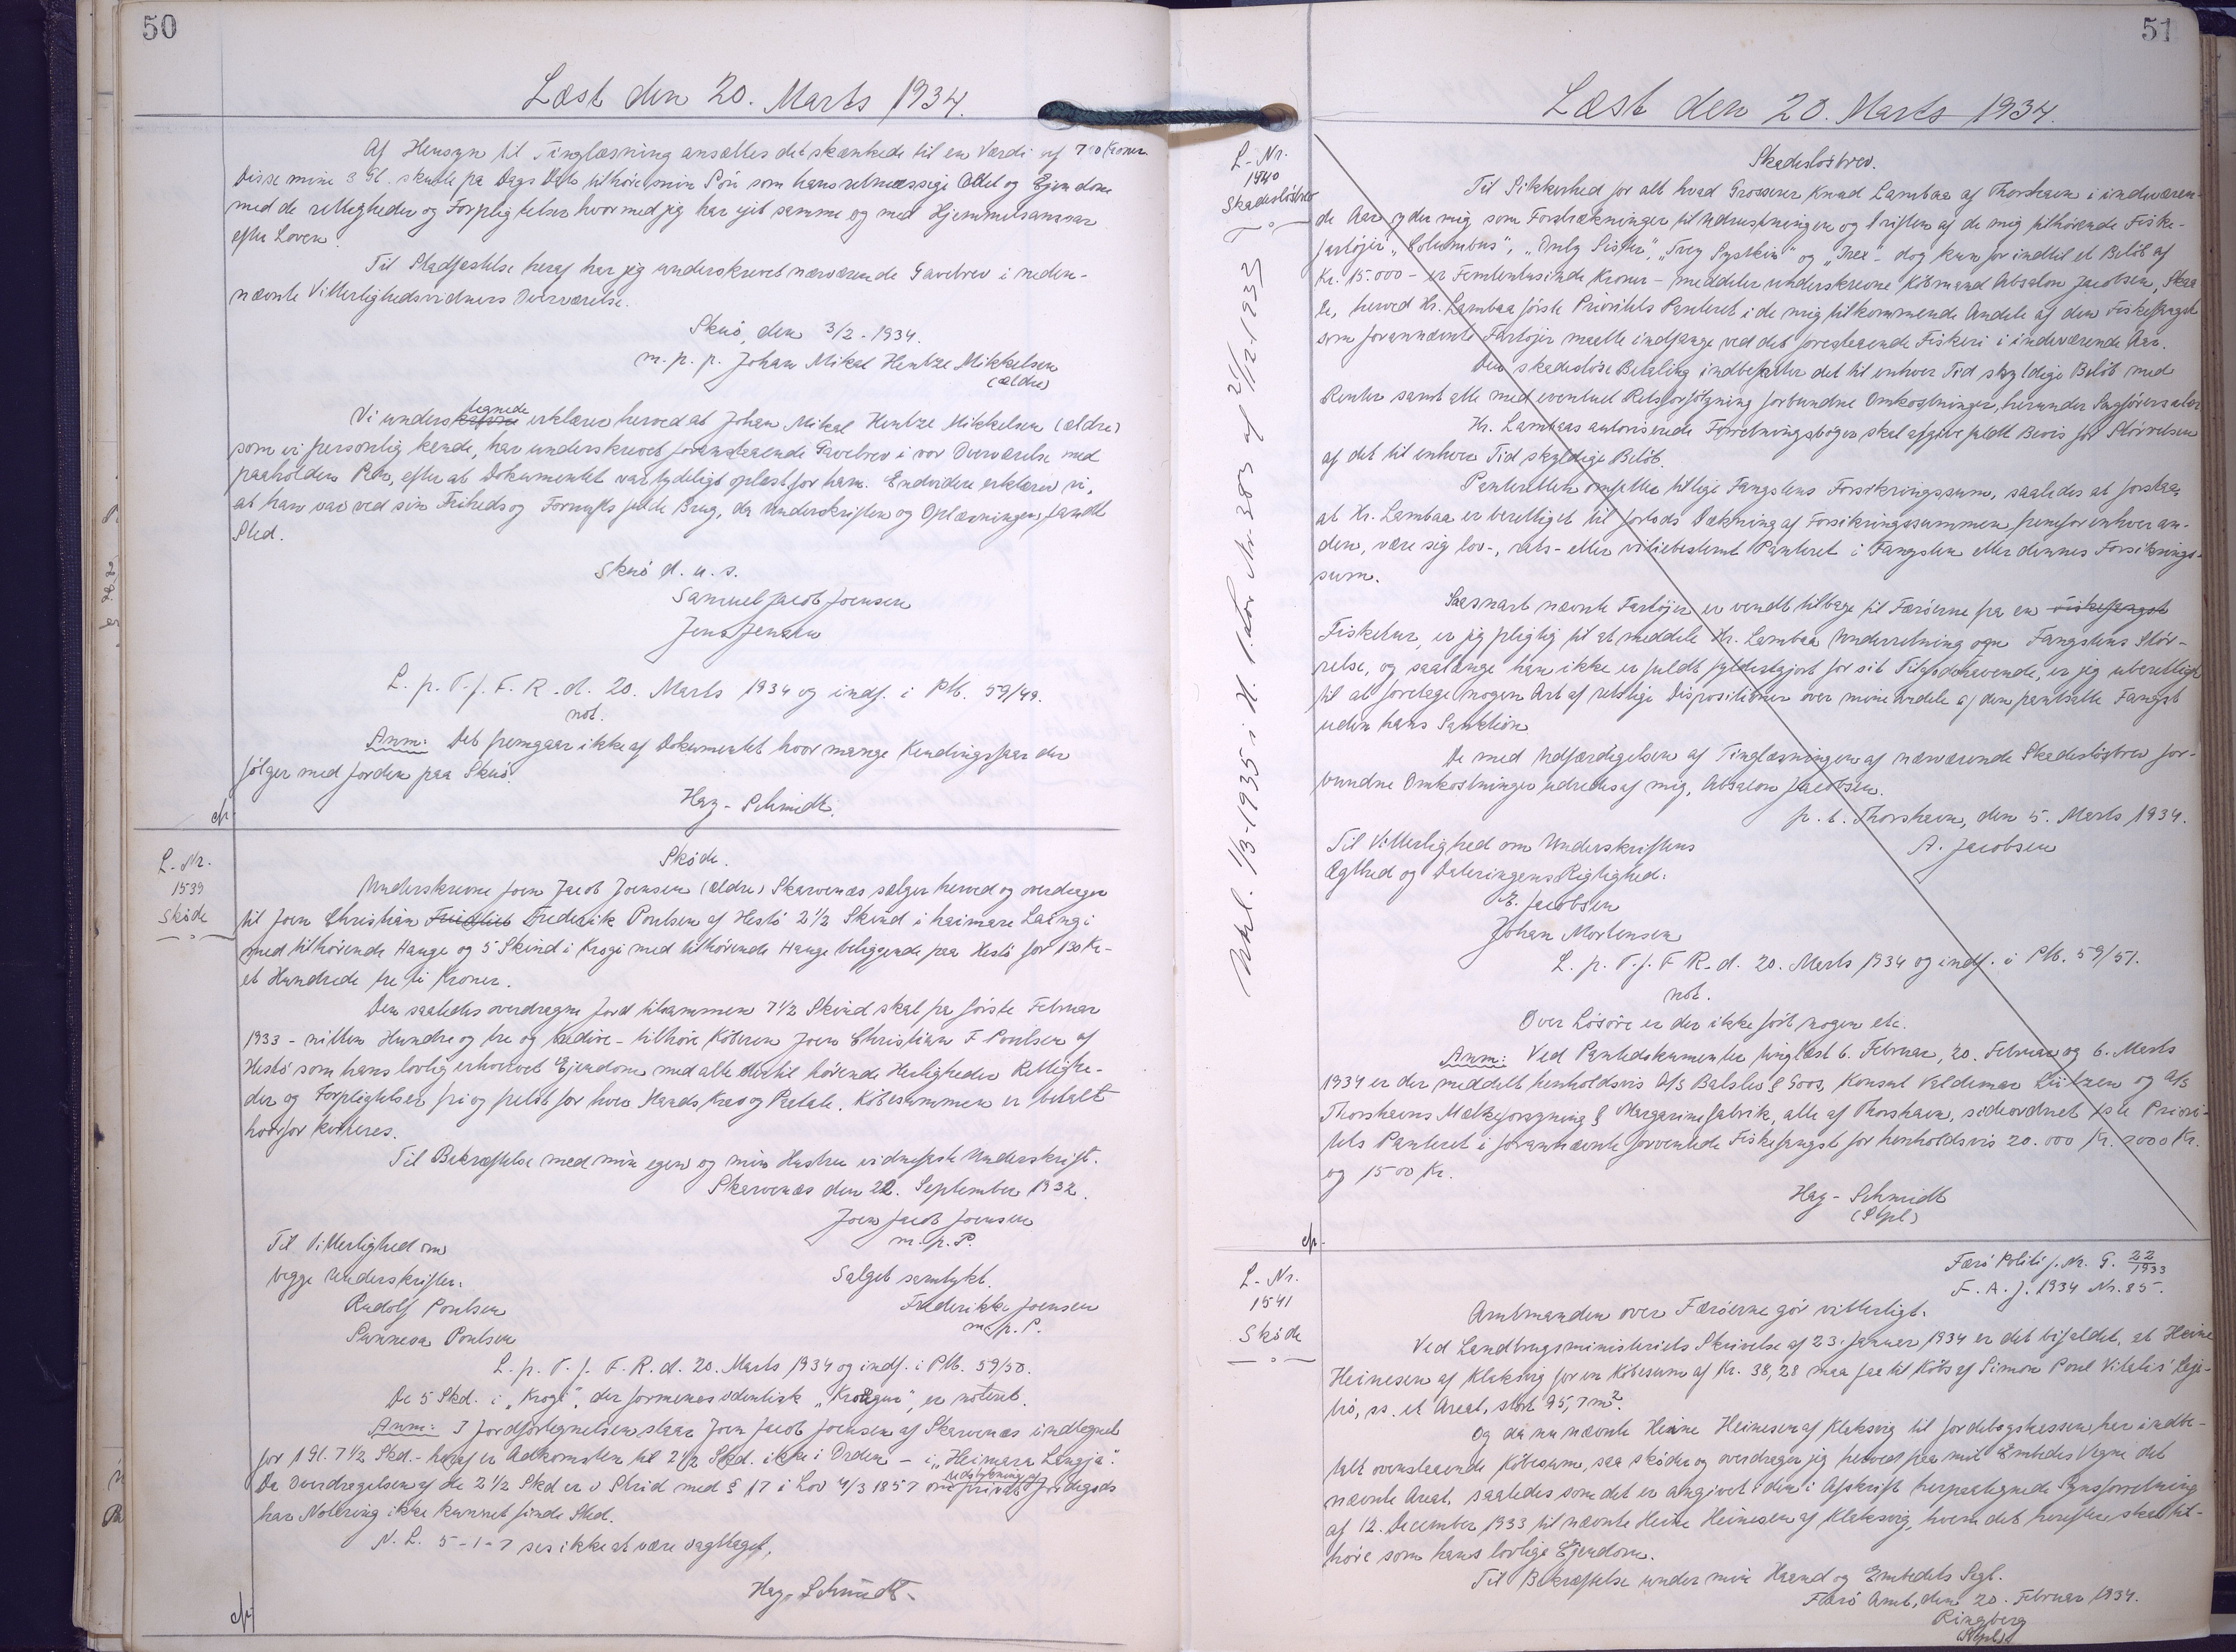 50
Læst den 20. Marts 1934.
Af Hensyn til Tinglæsning ansættes det skænkede til en Værdi af 700 Kroner.
Disse mine 3 Gl. skulle fra Dags Dato tilhöre min Sön som hans retmæssige Odel og Ejendom
med de rettigheder og Forpligtelser hvormed jeg har ejet samme og med Hjemmelsansvar
efter Loven.
Til Stadfæstelse heraf har jeg underskrevet nærværende Gavebrev i neden-
nævnte Vitterlighedsvidners Overværelse.
Skuö, den 3/2-1934.
m. p. p. Johan Mikal Hentze Mikkelsen
(ældre)
Vi undertegnede erklærer herved at Johan Mikal Hentze Mikkelsen (ældre)
som vi personlig kende, har underskrevet foranstaaende Gavebrev i vor Overværelse med
paaholden Pen, efter at Dokumentet var tydeligt oplæst for ham. Endvidere erklærer vi,
at han var ved sin Friheds og Fornufts fulde Brug, da Underskriften og Oplæsningen fandt
Sted.
Skuö d. u. s.
Samuel Jacob Joensen
Jens Jensen
L. p. T. f. F. R. d. 20. Marts 1934 og indf. i Pb. 59/49.
not.
Anm: Det fremgaar ikke af Dokumentet hvor mange Kendingsfaar der
fölger med Jorden paa Skuö.
Hag-Schmidt.
L-Nr.
1539
Sköde
Sköde.
Underskrevne Joen Jacob Joensen (ældre) Skarvenæs sælger herved og overdrager
til Joen Christian Frederik Poulsen af Hestö 2½ Skind i haimare Laangi
med tilhörende Hauge og 5 Skind i Krogi med tilhörende Hauge beliggende paa Hestö for 130 Kr-
et Hundrede tre ti Kroner.
Den saaledes overdragne Jord tilsammen 7½ Skind skal fra förste Februar
1933 - nitten Hundre og tre og tredive - tilhöre Köberen Joen Christian F Poulsen af
Hestö som hans lovlig erhvervet Ejendom med alle dertil hörende Herligheder Rettighe-
der og Forpligtelser fri og frelst for hver Mands Krav og Paatale. Köbesummen er betalt
hvorfor kvitteres.
Til Bekræftelse med min egen og min Hustru vidnefaste Underskrift.
Skarvenæs den 22. September 1932.
Joen Jacob Joensen
m. p. P.
Til Vitterlighed om
begge Underskrifter.
Rudolf Poulsen
Sunneva Poulsen
Salget samtykt.
Frederikke Joensen
m. p. P.
L. p. T. f. F. R. d. 20. Marts 1934 og indf. i Pb. 59/50.
De 5 Skd. i „Krogi", der formenes identisk „Kroagur", er noteret.
Anm: I Jordfortegnelsen staar Joen Jacob Joensen af Skarvenæs indtegnet
for 1 Gl. 7½ Skd. - heraf er Adkomsten til 2½ Skd. ikke i Orden - i „Heimara Langja".
Da Overdragelsen af de 2½ Skd er i Strid med § 17 i Lov 4/3 1857 om udstykning af privat Jordegods
har Notering ikke kunnet finde Sted.
N. L. 5-1-7 ses ikke at være iagttaget.
Hag-Schmidt-
51
Læst den 20. Marts 1934.
L-Nr.
1540
Skadeslösbrev
Udsl. 1/3-1935 i H. t. Lov Nr. 383 af 21/12-1933
Skadeslösbrev.
Til Sikkerhed for alt hvad Grosserer Knud Lambaa af Thorshavn i indeværen-
de Aar yder mig som Forstrækninger til Udrustningen og Driften af de mig tilhörende Fiske-
fartöjer „Columbus", „Only Sister", „Trey Systkin" og „Trex"- dog kun for indtil et Belöb af
Kr. 15.000 - er Femtentusinde Kroner - meddeler underskrevne Köbmand Absalon Jacobsen, Skaa
le, herved Hr. Lambaa förste Prioritets Panteret i de mig tilkommende Andele af den Fiskefangst
som forannævnte Fartöjer maatte indfange ved det forestaaende Fiskeri i indeværende Aar.
Den skadeslöse Betaling indbefatter det til enhver Tid skyldige Belöb med
Renter samt alle med eventuel Retsforfölgning forbundne Omkostninger, herunder Sagförersalær
Hr. Lambaas autoriserede Forretningsböger skal afgive fuldt Bevis for Störrelsen
af det til enhver Tid skyldige Belöb.
Panteretten omfatter tillige Fangstens Forsikringssum, saaledes at forstaa,
at Hr. Lambaa er berettiget til forlods Dækning af Forsikringssummen fremfor enhver an-
den, være sig lov-, rets- eller viliebestemt Panteret i Fangsten eller dennes Forsikrings-
sum.
Saasnart nævnte Fartöjer er vendt tilbage til Færöerne fra en Fiskefangst
Fisketur, er jeg pligtig til at meddele Hr. Lambaa Underretning om Fangstens Stör-
relse, og saalænge han ikke er fuldt fyldestgjort for sit Tilgodehavende, er jeg uberettiget
til at foretage nogen Art af retslige Dispositioner over mine Andele af den pantsatte Fangst
uden hans Sanktion
De med Udfærdigelsen af Tinglæsningen af nærværende Skadeslösbrev for-
bundne Omkostninger udredes af mig, Absalon Jacobsen.
p. t. Thorshavn, den 5. Marts 1934.
A. Jacobsen
Til Vitterlighed om Underskriftens
Ægthed og Dateringens Rigtighed:
E. Jacobsen
Johan Mortensen
L. p. T. f. F R. d. 20. Marts 1934 og indf. i Pb. 59/51.
not.
Over Lösöre er der ikke fört nogen etc.
Anm: Ved Pantedokumenter tinglæst 6. Februar, 20. Februar og 6. Marts
1934 er der meddelt henholdsvis A/S Balslev & Goos, Konsul Valdemar Lützen og A/S
Thorshavns Mælkeforsyning & Margarinefabrik, alle af Thorshavn, sideordnet 1ste Priori-
tets Panteret i forannævnte forventede Fiskefangst for henholdsvis 20.000 Kr. 2000 Kr.
og 1500 Kr.
Hag-Schmidt
(Stpl)
L-Nr.
1541
Sköde
Færö Politi j. Nr. G. 22/1933
F. A. J. 1934 Nr. 85.
Amtmanden over Færöerne gör vitterligt.
Ved Landbrugsministeriets Skrivelse af 23. Januar 1934 er det bifaldet, at Heine
Heinesen af Klaksvig for en Köbesum af Kr. 38,28 maa faa til Köbs af Simon Poul Vitalis' Leje-
trö, ss. et Areal, stort 95,7 m².
Og da nu nævnte Heine Heinesen af Klaksvig til Jordebogskassen her indbe-
talt ovenstaaende Köbesum, saa sköder og overdrager jeg herved paa mit Embedes Vegne det
nævnte Areal, saaledes som det er angivet i den i Afskrift herpaategnede Synsforretning
af 12. December 1933 til nævnte Heine Heinesen af Klaksvig, hvem det herefter skal til-
höre som hans lovlige Ejendom.
Til Bekræftelse under min Haand og Embedets Segl.
Færö Amt, den 20. Februar 1934.
Ringberg
(Stpl)